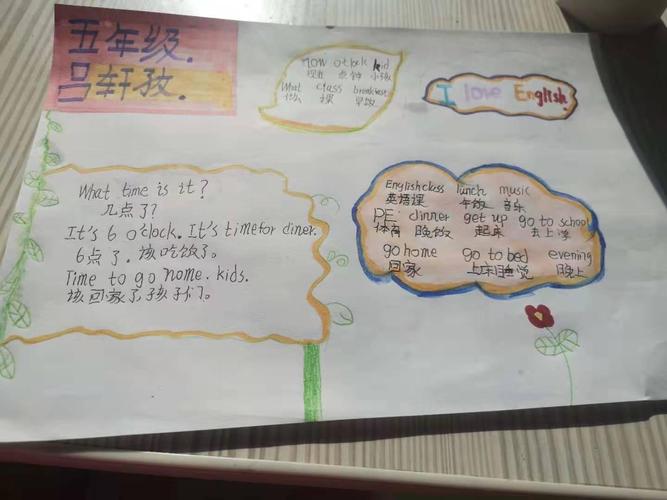 五年级.
吕轩孜.
now o'clock kid
现在 点钟 小孩
What class breakfast
什么 课 早饭
I love English.
What time is it?
几点了?
It's 6 o'clock. It's time for diner.
6点了, 该吃饭了。
Time to go home. kids.
该回家了,孩子们。
English class lunch music
英语课 午饭 音乐
PE. dinner get up go to school
体育 晚饭 起床 去上学
go home go to bed evening
回家 上床睡觉 晚上